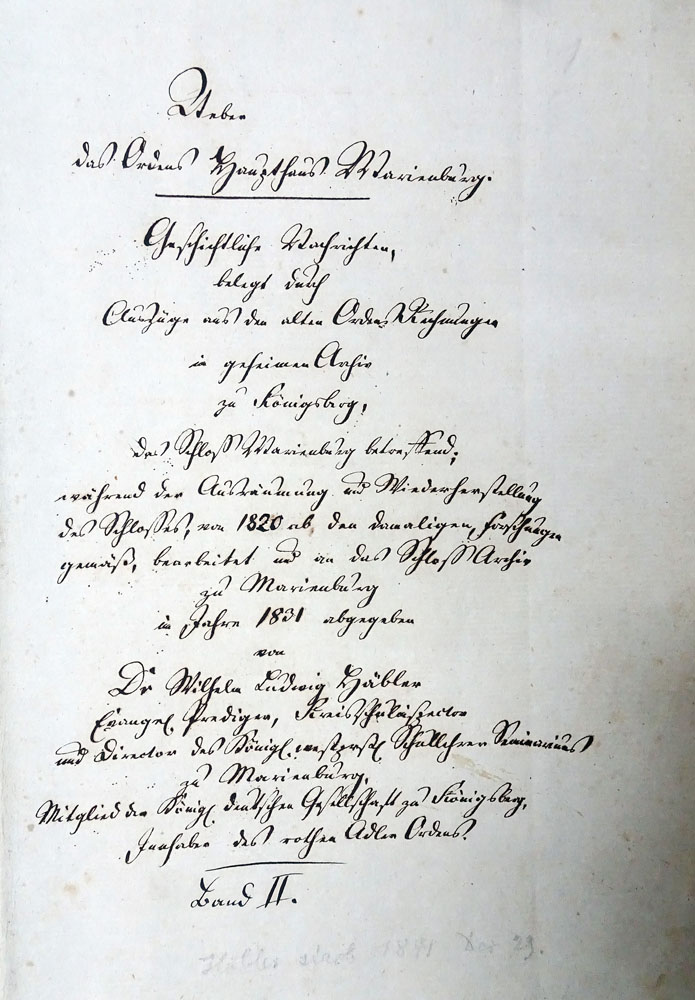 Ueber
das Ordens Haupthaus Marienburg.
Geschichtliche Nachrichten,
belegt durch
Auszüge aus den alten Ordens Rechnungen
im geheimen Archiv
zu Königsberg,
das Schloß Marienburg betreffend;
während der Ausräumung und Wiederherstellung
des Schlosses, von 1820 ab, den damaligen Forschungen
gemäß, bearbeitet und an das Schloß Archiv
zu Marienburg
im Jahre 1831 abgegeben
von
Dr Wilhelm Ludwig Häbler
Evangel. Prediger, Kreisschulinspector
und Director des Königl. westpreuß. Schullehrer Seminariums
zu Marienburg,
Mitglied der Königl. deutschen Gesellschaft zu Königsberg,
Innhaber des rothen Adler Ordens.
Band II.
Häbler starb 1841 Dec 29.